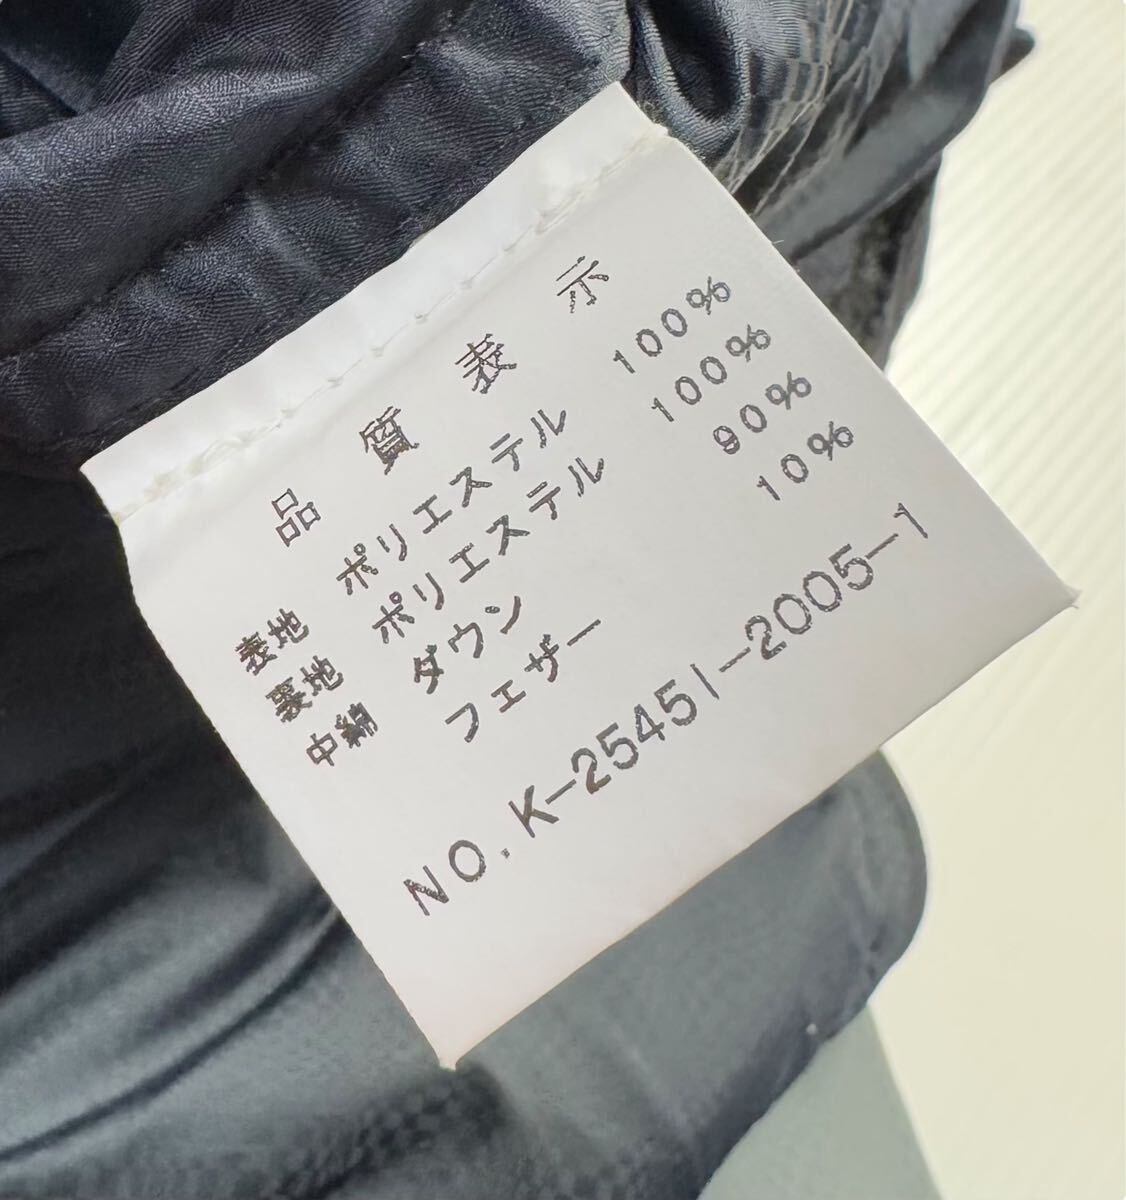 品質表示
表地 ポリエステル 100%
裏地 ポリエステル 100%
中綿 ダウン 90%
フェザー 10%
NO.K-25451-2005-1